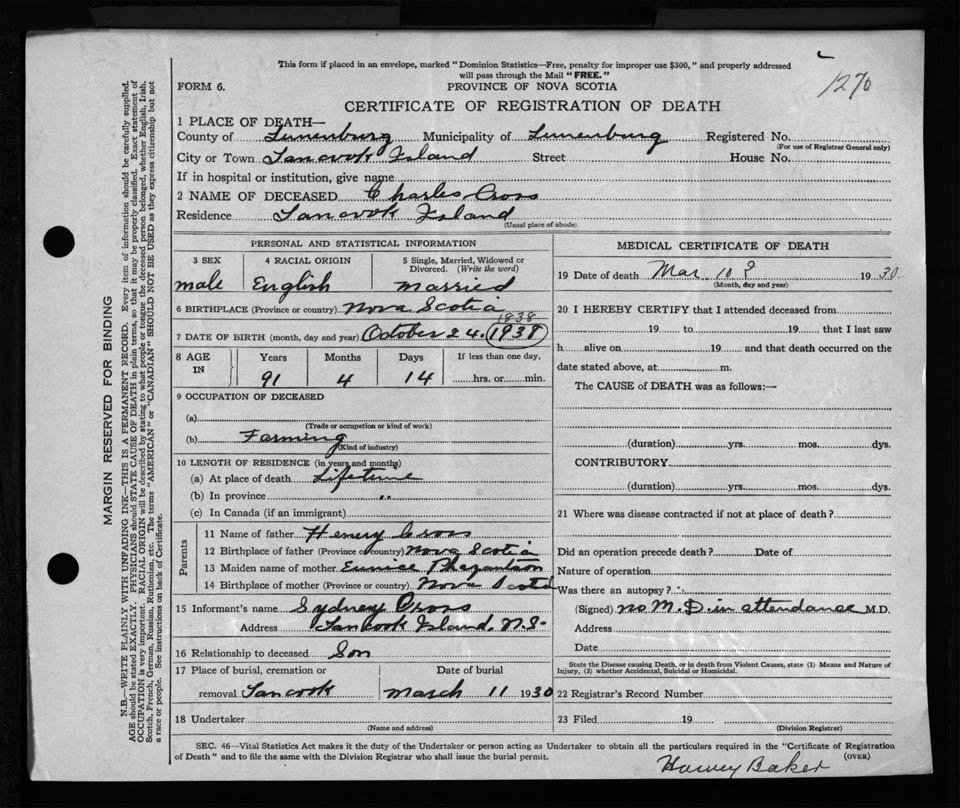 This form if placed in an envelope, marked "Dominion Statistics—Free, penalty for improper use $300," and properly addressed
will pass through the Mail "FREE."
1270
FORM 6.
PROVINCE OF NOVA SCOTIA
CERTIFICATE OF REGISTRATION OF DEATH
1 PLACE OF DEATH—
County of Lunenburg Municipality of Lunenburg Registered No.
(For use of Registrar General only)
City or Town Tancook Island Street House No.
If in hospital or institution, give name
2 NAME OF DECEASED Charles Cross
Residence Tancook Island
(Usual place of abode)
PERSONAL AND STATISTICAL INFORMATION
3 SEX 4 RACIAL ORIGIN 5 Single, Married, Widowed or Divorced. (Write the word)
male English married
6 BIRTHPLACE (Province or country) Nova Scotia
1838
7 DATE OF BIRTH (month, day and year) October 24. 1938
8 AGE IN Years Months Days If less than one day,
91 4 14 hrs. or min.
9 OCCUPATION OF DECEASED
(a)
(Trade or occupation or kind of work)
(b) Farming
(Kind of industry)
10 LENGTH OF RESIDENCE (in years and months)
(a) At place of death Lifetime
(b) In province "
(c) In Canada (if an immigrant)
Parents
11 Name of father Henery Cross
12 Birthplace of father (Province or country) Nova Scotia
13 Maiden name of mother Eunice
14 Birthplace of mother (Province or country) Nova Scotia
15 Informant's name Sydney Cross
Address Tancook Island N.S.
16 Relationship to deceased Son
17 Place of burial, cremation or Date of burial
removal Tancook March 11 1930
18 Undertaker
(Name and address)
MEDICAL CERTIFICATE OF DEATH
19 Date of death Mar. 10 ? 1930
(Month, day and year)
20 I HEREBY CERTIFY that I attended deceased from
19 to 19 that I last saw
h alive on 19 and that death occurred on the
date stated above, at m.
The CAUSE of DEATH was as follows:—
(duration) yrs. mos. dys.
CONTRIBUTORY
(duration) yrs. mos. dys.
21 Where was disease contracted if not at place of death?
Did an operation precede death? Date of
Nature of operation
Was there an autopsy?
(Signed) no M.D. in attendance M.D.
Address
Date
State the Disease causing Death, or in death from Violent Causes, state (1) Means and Nature of
Injury, (2) whether Accidental, Suicidal or Homicidal.
22 Registrar's Record Number
23 Filed 19
(Division Registrar)
SEC. 46—Vital Statistics Act makes it the duty of the Undertaker or person acting as Undertaker to obtain all the particulars required in the "Certificate of Registration
of Death" and to file the same with the Division Registrar who shall issue the burial permit.
(OVER)
Harvey Baker
MARGIN RESERVED FOR BINDING
N.B.—WRITE PLAINLY WITH UNFADING INK—THIS IS A PERMANENT RECORD. Every item of information should be carefully supplied.
AGE should be stated EXACTLY. PHYSICIANS should STATE CAUSE OF DEATH in plain terms, so that it may be properly classified. Exact statement of
OCCUPATION is very important. RACIAL ORIGIN will be described by stating to what people or tongue the deceased person belonged, whether English, Irish,
Scotch, French, German, Russian, Ruthenian, etc. The terms "AMERICAN" or "CANADIAN" SHOULD NOT BE USED as they express citizenship but not
a race or people. See instructions on back of Certificate.